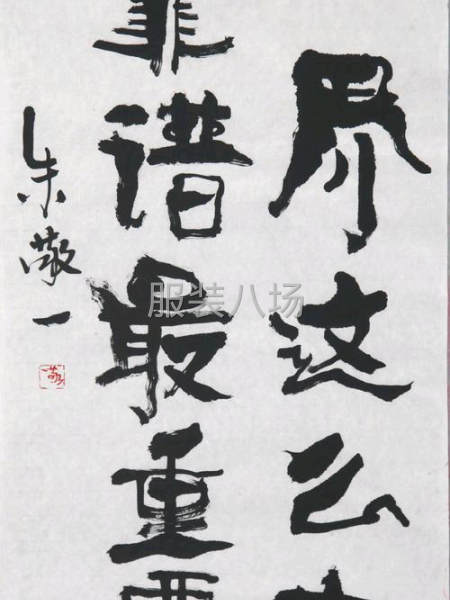 界这么
靠谱最重要
朱敬一
服装八场